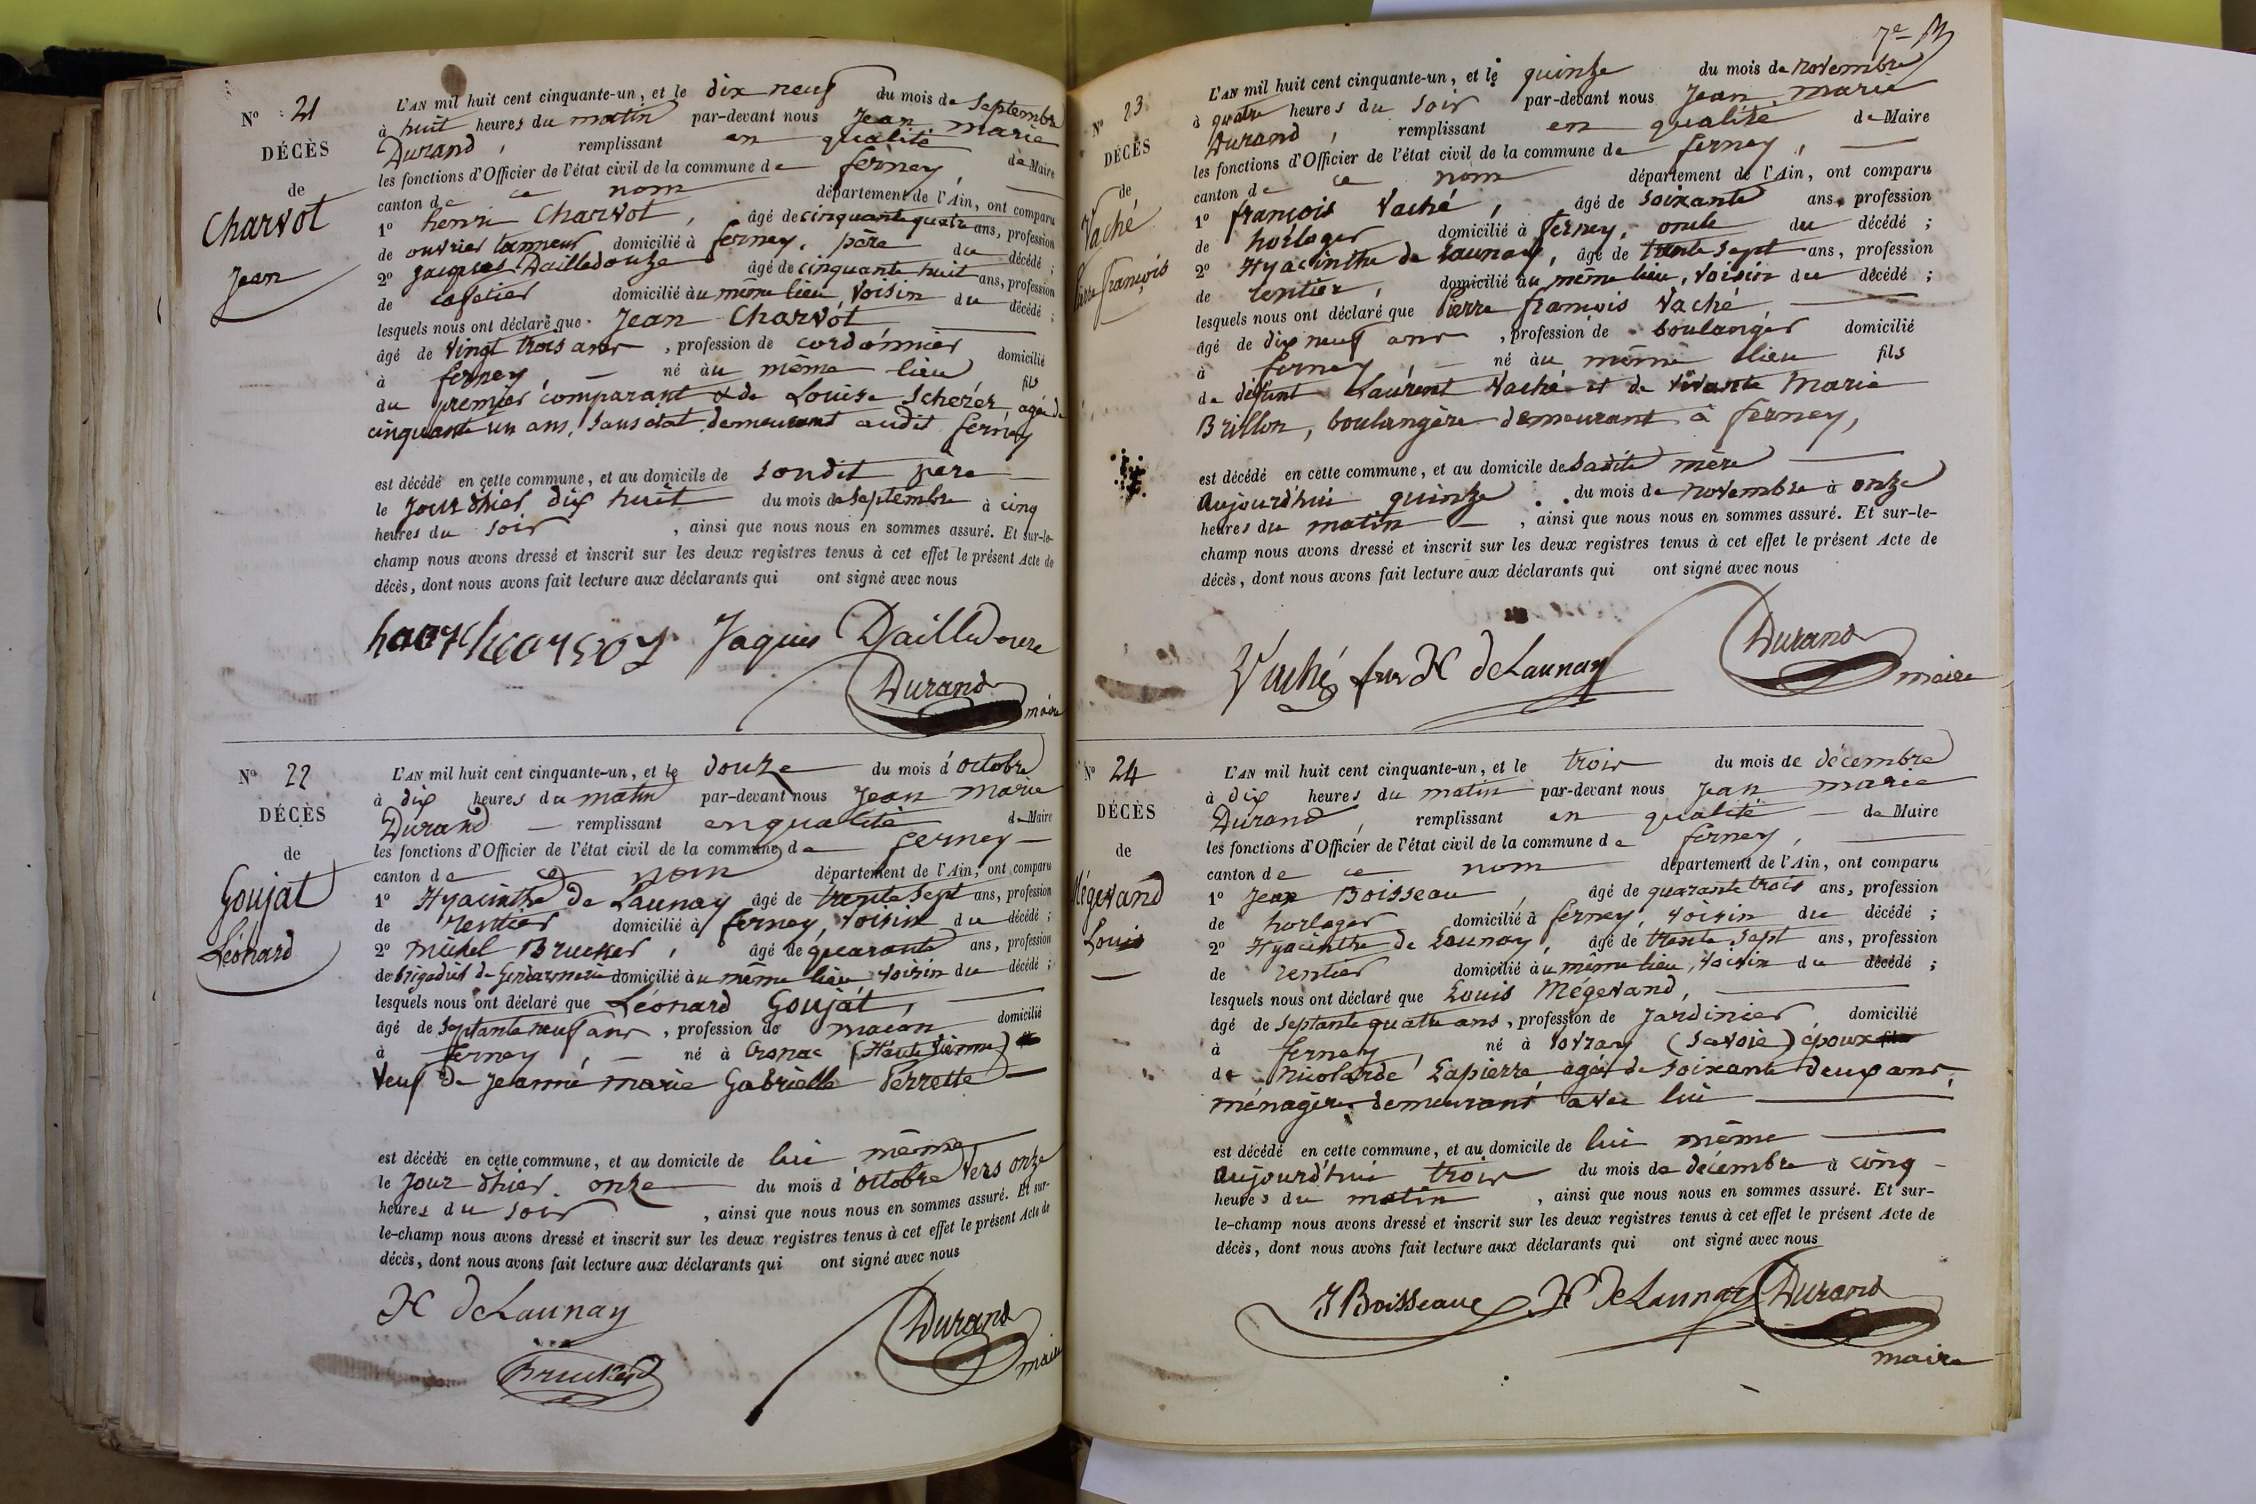 Nº 21
DÉCÈS
de
Charvot
Jean
L'AN mil huit cent cinquante-un, et le dix neuf du mois de Septembre
à huit heures du matin par-devant nous Jean Marie
Durand, remplissant en qualité de Maire
les fonctions d'Officier de l'état civil de la commune de ferney,
canton de ce nom département de l'Ain, ont comparu
1º henri Charvot, âgé de cinquante quatre ans, profession
de ouvrier tanneur domicilié à ferney, père du décédé;
2º Jacques Dailledouze âgé de cinquante huit ans, profession
de cafetier domicilié au même lieu, voisin du décédé;
lesquels nous ont déclaré que Jean Charvot
âgé de vingt trois ans, profession de cordonnier domicilié
à ferney, né au même lieu fils
du premier comparant & de Louise Scherer, agée de
cinquante un ans, sans état demeurant audit ferney
est décédé en cette commune, et au domicile de sondit père
le jour d'hier dix huit du mois de Septembre à cinq
heures du soir, ainsi que nous nous en sommes assuré. Et sur-le-
champ nous avons dressé et inscrit sur les deux registres tenus à cet effet le présent Acte de
décès, dont nous avons fait lecture aux déclarants qui ont signé avec nous
Jaques Dailledouze
Durand
maire
Nº 22
DÉCÈS
de
Goujat
Léonard
L'AN mil huit cent cinquante-un, et le douze du mois d'octobre
à dix heures du matin par-devant nous Jean Marie
Durand remplissant en qualité de Maire
les fonctions d'Officier de l'état civil de la commune de ferney
canton de ce nom département de l'Ain, ont comparu
1º Hyacinthe de Launay âgé de trente sept ans, profession
de rentier domicilié à ferney, voisin du décédé;
2º Michel Brucker, âgé de quarante ans, profession
de brigadier de Gendarmerie domicilié au même lieu, voisin du décédé;
lesquels nous ont déclaré que Léonard Goujat,
âgé de septante neuf ans, profession de maçon domicilié
à ferney, né à Cronac (Haute Vienne)
veuf de Jeanne marie Gabrielle Perrette
est décédé en cette commune, et au domicile de lui même
le jour d'hier onze du mois d'octobre vers onze
heures du soir, ainsi que nous nous en sommes assuré. Et sur-
le-champ nous avons dressé et inscrit sur les deux registres tenus à cet effet le présent Acte de
décès, dont nous avons fait lecture aux déclarants qui ont signé avec nous
H deLaunay
Durand
maire
Brucker
7e
Nº 23
DÉCÈS
de
Vaché
Pierre françois
L'AN mil huit cent cinquante-un, et le quinze du mois de novembre
à quatre heures du soir par-devant nous Jean marie
Durand, remplissant en qualité de Maire
les fonctions d'Officier de l'état civil de la commune de ferney,
canton de ce nom département de l'Ain, ont comparu
1º françois Vaché, âgé de soixante ans, profession
de horloger domicilié à ferney, oncle du décédé;
2º Hyacinthe de Launay, âgé de trente sept ans, profession
de rentier, domicilié au même lieu, voisin du décédé;
lesquels nous ont déclaré que Pierre françois Vaché
âgé de dix neuf ans, profession de boulanger domicilié
à ferney, né au même lieu fils
de défunt Laurent Vaché et de vivante Marie
Brillon, boulangère demeurant à ferney,
est décédé en cette commune, et au domicile de sadite mère
aujourd'hui quinze du mois de novembre à onze
heures du matin, ainsi que nous nous en sommes assuré. Et sur-le-
champ nous avons dressé et inscrit sur les deux registres tenus à cet effet le présent Acte de
décès, dont nous avons fait lecture aux déclarants qui ont signé avec nous
Vaché H deLaunay Durand
maire
Nº 24
DÉCÈS
de
Mégevand
Louis
L'AN mil huit cent cinquante-un, et le trois du mois de décembre
à dix heures du matin par-devant nous Jean marie
Durand, remplissant en qualité de Maire
les fonctions d'Officier de l'état civil de la commune de ferney,
canton de ce nom département de l'Ain, ont comparu
1º Jean Boisseau, âgé de quarante trois ans, profession
de horloger domicilié à ferney, voisin du décédé;
2º Hyacinthe de Launay, âgé de trente sept ans, profession
de rentier domicilié au même lieu, voisin du décédé;
lesquels nous ont déclaré que Louis Mégevand,
âgé de septante quatre ans, profession de jardinier domicilié
à ferney, né à Vovray (Savoie) époux
de Nicolarde Lapierre agée de soixante deux ans,
ménagère demeurant avec lui
est décédé en cette commune, et au domicile de lui même
aujourd'hui trois du mois de décembre à cinq
heures du matin, ainsi que nous nous en sommes assuré. Et sur-
le-champ nous avons dressé et inscrit sur les deux registres tenus à cet effet le présent Acte de
décès, dont nous avons fait lecture aux déclarants qui ont signé avec nous
J Boisseau H deLaunay Durand
maire